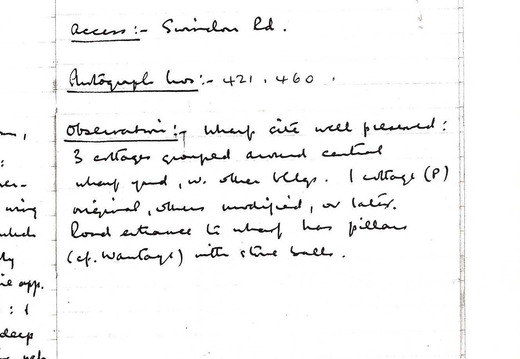 Access:- Swindon Rd.
Photograph Nos:- 421, 460.
Observation:- Wharf site well preserved:
3 cottages grouped around central
wharf yard, w. other bldgs. 1 cottage (P)
original, others modified, or later.
Road entrance to wharf has pillars
(cf. Wantage) with stone balls.
using
app.
deep